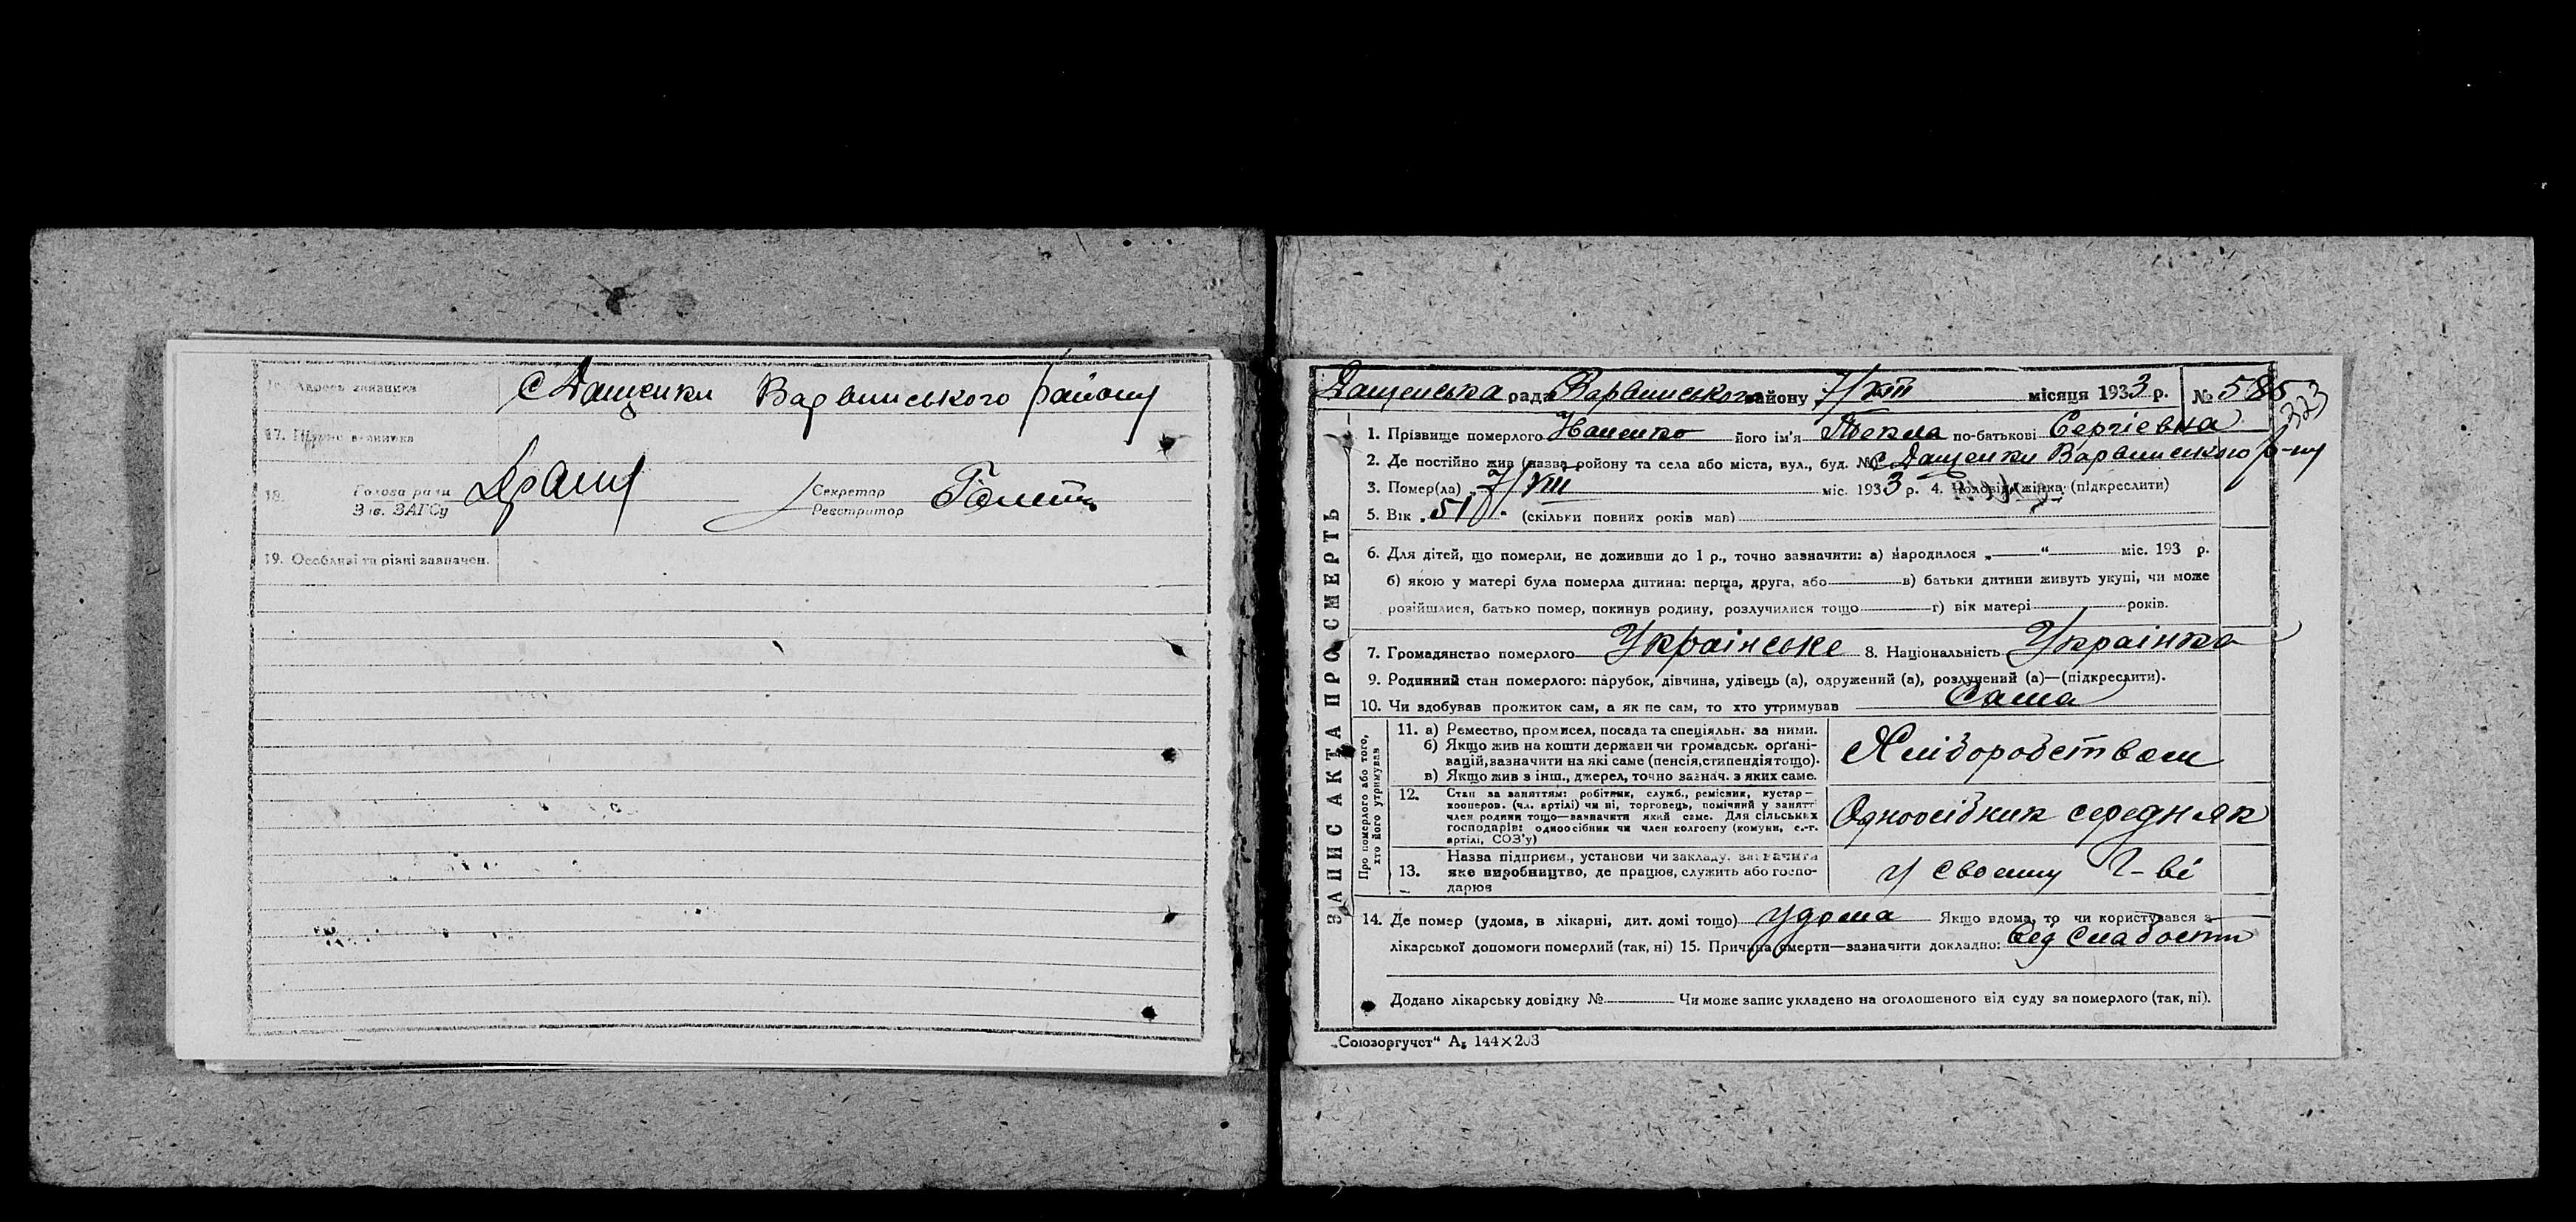 16. Адреса заявника С Дащенки Варвинського району
17. Підпис заявника
18. Голова ради Секретар
Зав. ЗАГСу Реєстратор
19. Особливі та різні зазначен.
Дащенська рада Варвинського району 7/VIII місяця 1933 р. № 585
323
ЗАПИС АКТА ПРО СМЕРТЬ
1. Прізвище померлого його ім'я Текла по-батькові Сергіевна
2. Де постійно жив (назва району та села або міста, вул., буд. № С Дащенки Варвинського р-ну
3. Помер(ла) „ 7/VIII міс. 1933 р. 4. Чоловік, жінка (підкреслити)
5. Вік 51 р. (скільки повних років мав)
6. Для дітей, що померли, не доживши до 1 р., точно зазначити: а) народилося „ “ міс. 193 р.
б) якою у матері була померла дитина: перша, друга, або в) батьки дитини живуть укупі, чи може
розійшлися, батько помер, покинув родину, розлучилися тощо г) вік матері років.
7. Громадянство померлого Українське 8. Національність Українка
9. Родинний стан померлого: парубок, дівчина, удівець (а), одружений (а), розлучений (а)—(підкреслити).
10. Чи здобував прожиток сам, а як не сам, то хто утримував Сама
Про померлого або того, хто його утримував
11. а) Ремество, промисел, посада та спеціяльн. за ними.
б) Якщо жив на кошти держави чи громадськ. органі-
зацій, зазначити на які саме (пенсія, стипендія тощо).
в) Якщо жив з інш., джерел, точно зазнач. з яких саме.
Хліборобством
12. Стан за заняттям: робітник, служб., ремісник, кустар—
кооперов. (чл. артілі) чи ні, торговець, помічний у занятті
член родини тощо—зазначити який саме. Для сільських
господарів: одноосібник чи член колгоспу (комуни, с.-г.
артілі, СОЗ'у)
Одноосібник середняк
13. Назва підприєм., установи чи закладу, зазначити
яке виробництво, де працює, служить або госпо-
дарює
у своему г-ві
14. Де помер (удома, в лікарні, дит. домі тощо) удома Якщо вдома, то чи користувався з
лікарської допомоги померлий (так, ні) 15. Причина смерти—зазначити докладно: від слабости
Додано лікарську довідку № Чи може запис укладено на оголошеного від суду за померлого (так, ні).
„Союзоргучет“ А₅ 144×203